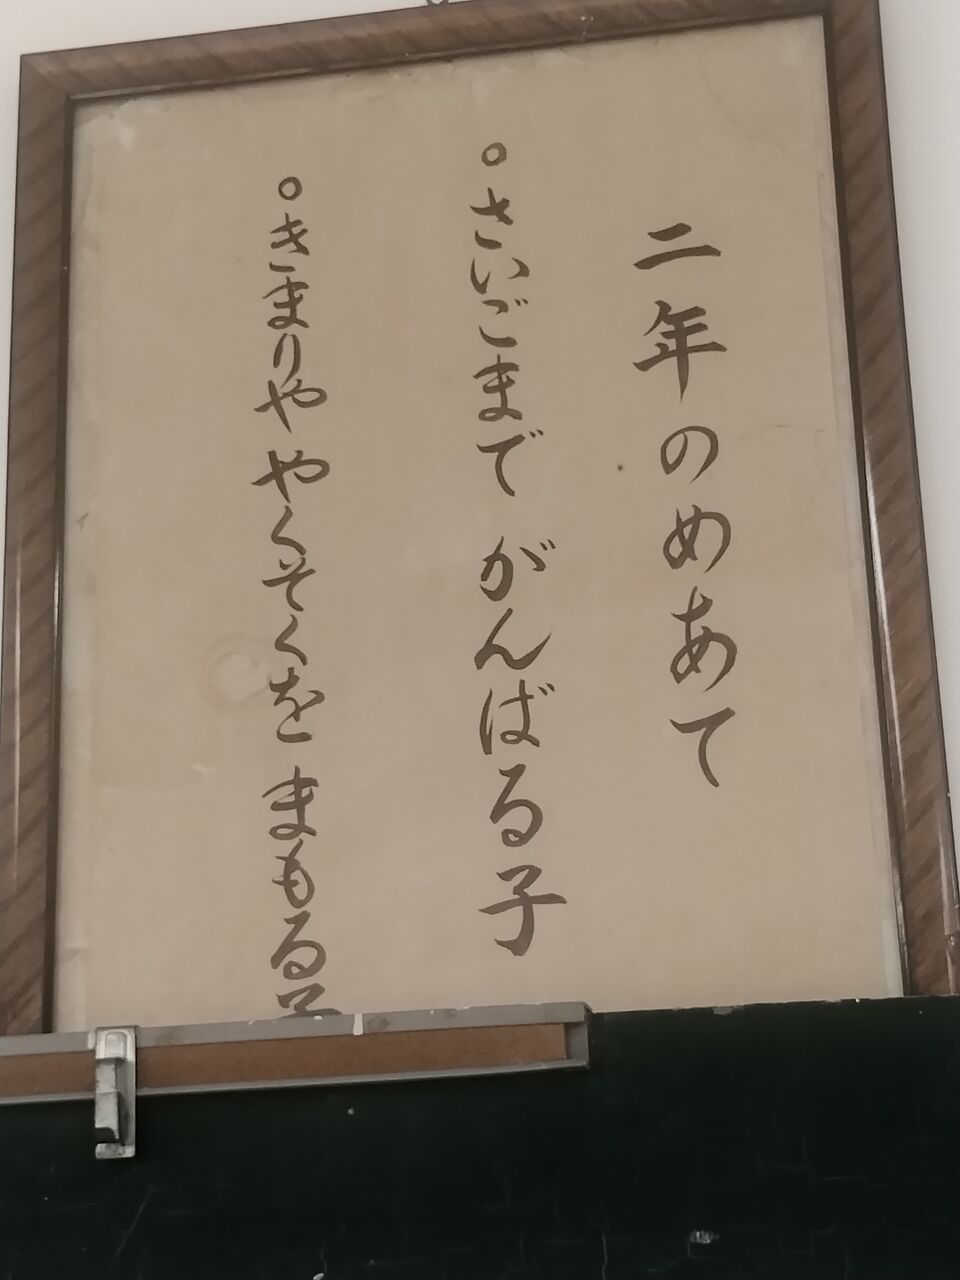 二年のめあて
○さいごまで がんばる子
○きまりや やくそくを まもる子